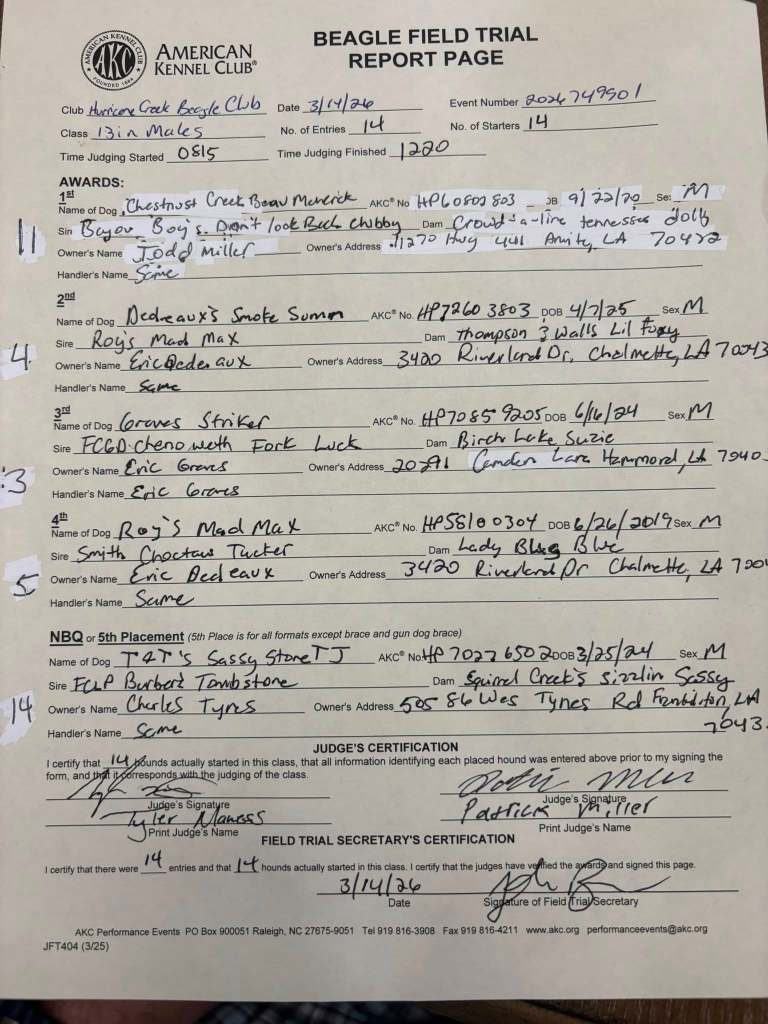 AMERICAN KENNEL CLUB
AKC
FOUNDED 1884
AMERICAN
KENNEL CLUB®
BEAGLE FIELD TRIAL
REPORT PAGE
Club Hurricane Creek Beagle Club Date 3/14/26 Event Number 2026749901
Class 13in Males No. of Entries 14 No. of Starters 14
Time Judging Started 0815 Time Judging Finished 1220
AWARDS:
1st
Name of Dog Chestnust Creek Beau Maverick AKC® No HP60802803 9/22/20 Se: M
11
Sir Bayou Boy's Don't look Back Chubby Dam Crowd-a-line tennessee dolly
Owner's Name Todd Miller Owner's Address 11270 Hwy 441 Amity, LA 70422
Handler's Name Same
2nd
Name of Dog Dedeaux's Smoke Summon AKC® No. HP72603803 DOB 4/7/25 Sex M
Sire Roy's Mad Max Dam Thompson 3 Walls Lil Foxy
4
Owner's Name Eric Dedeaux Owner's Address 3420 Riverland Dr, Chalmette, LA 70043
Handler's Name Same
3rd
Name of Dog Graves Striker AKC® No. HP70859205 DOB 6/16/24 Sex M
Sire FCGD chenoweth Fork Luck Dam Birch Lake Suzie
3
Owner's Name Eric Graves Owner's Address Camden Lane Hammond, LA 7040
Handler's Name Eric Graves
4th
Name of Dog Roy's Mad Max AKC® No. HP58100304 DOB 6/26/2019 Sex M
Sire Smith Choctaw Tucker Dam Lady Blue
5
Owner's Name Eric Dedeaux Owner's Address 3420 Riverland Dr Chalmette, LA 7004
Handler's Name Same
NBQ or 5th Placement (5th Place is for all formats except brace and gun dog brace)
Name of Dog T&T's Sassy Stone TJ AKC® No. HP70276502 DOB 3/25/24 Sex M
Sire FCLP Burber's Tombstone Dam Squirrel Creek's sizzlin Sassy
14
Owner's Name Charles Tynes Owner's Address 50586 Wes Tynes Rd Franklinton, LA
Handler's Name Same 7043
JUDGE'S CERTIFICATION
I certify that 14 hounds actually started in this class, that all information identifying each placed hound was entered above prior to my signing the
form, and that it corresponds with the judging of the class.
Judge's Signature Judge's Signature
Tyler Maness Patrick Miller
Print Judge's Name Print Judge's Name
FIELD TRIAL SECRETARY'S CERTIFICATION
I certify that there were 14 entries and that 14 hounds actually started in this class. I certify that the judges have verified the awards and signed this page.
3/14/26
Date Signature of Field Trial Secretary
AKC Performance Events PO Box 900051 Raleigh, NC 27675-9051 Tel 919 816-3908 Fax 919 816-4211 www.akc.org performanceevents@akc.org
JFT404 (3/25)